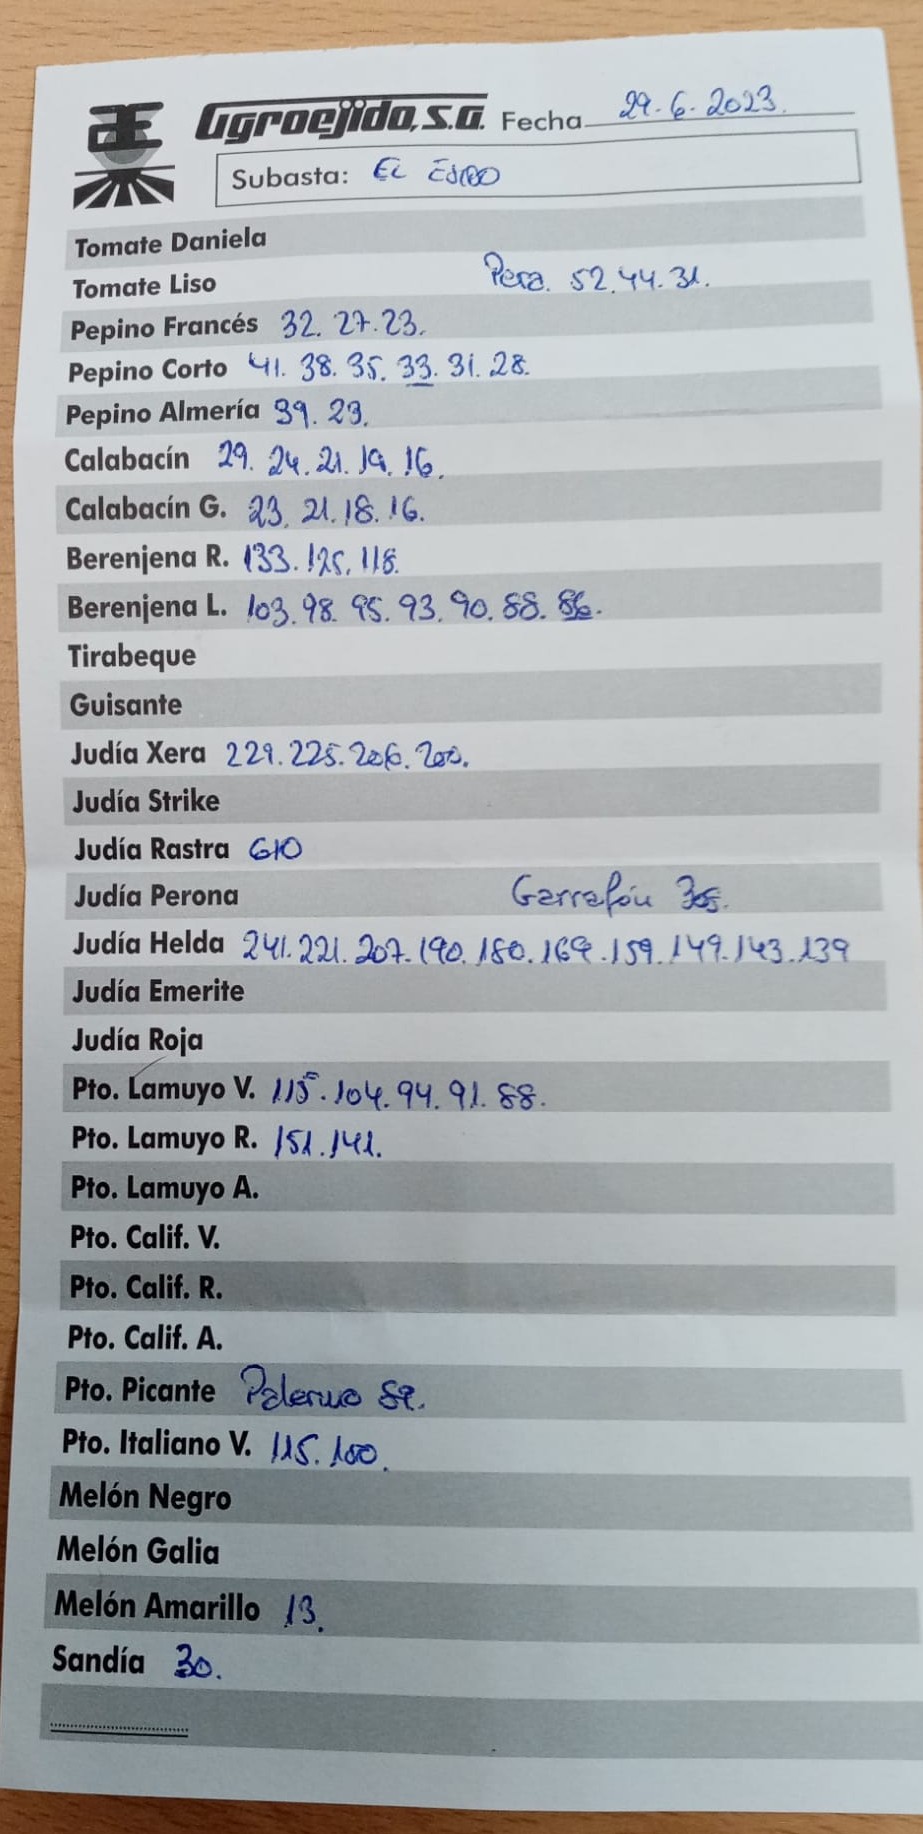 Agroejido, S.A. Fecha 29.6.2023.
Subasta: EL EJIDO
Tomate Daniela
Tomate Liso Pera. 52.44.31.
Pepino Francés 32. 27.23.
Pepino Corto 41. 38. 35. 33. 31. 28.
Pepino Almería 39. 23.
Calabacín 29. 24. 21. 19. 16.
Calabacín G. 23. 21. 18. 16.
Berenjena R. 133. 125. 118.
Berenjena L. 103. 98. 95. 93. 90. 88. 86.
Tirabeque
Guisante
Judía Xera 229. 225. 206. 200.
Judía Strike
Judía Rastra 610
Judía Perona Garrafón 305.
Judía Helda 241. 221. 207. 190. 180. 169. 159. 149. 143. 139
Judía Emerite
Judía Roja
Pto. Lamuyo V. 115. 104. 94. 91. 88.
Pto. Lamuyo R. 151. 141.
Pto. Lamuyo A.
Pto. Calif. V.
Pto. Calif. R.
Pto. Calif. A.
Pto. Picante Palermo 89.
Pto. Italiano V. 115. 100.
Melón Negro
Melón Galia
Melón Amarillo 13.
Sandía 30.